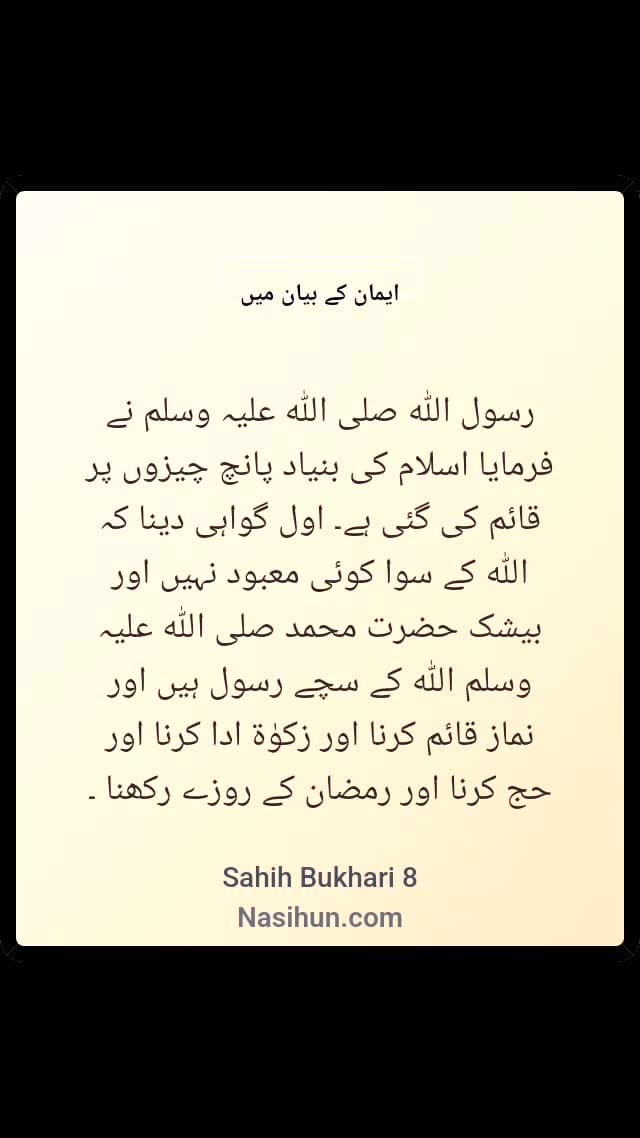 ایمان کے بیان میں
رسول اللہ صلی اللہ علیہ وسلم نے
فرمایا اسلام کی بنیاد پانچ چیزوں پر
قائم کی گئی ہے۔ اول گواہی دینا کہ
اللہ کے سوا کوئی معبود نہیں اور
بیشک حضرت محمد صلی اللہ علیہ
وسلم اللہ کے سچے رسول ہیں اور
نماز قائم کرنا اور زکوٰۃ ادا کرنا اور
حج کرنا اور رمضان کے روزے رکھنا ۔
Sahih Bukhari 8
Nasihun.com